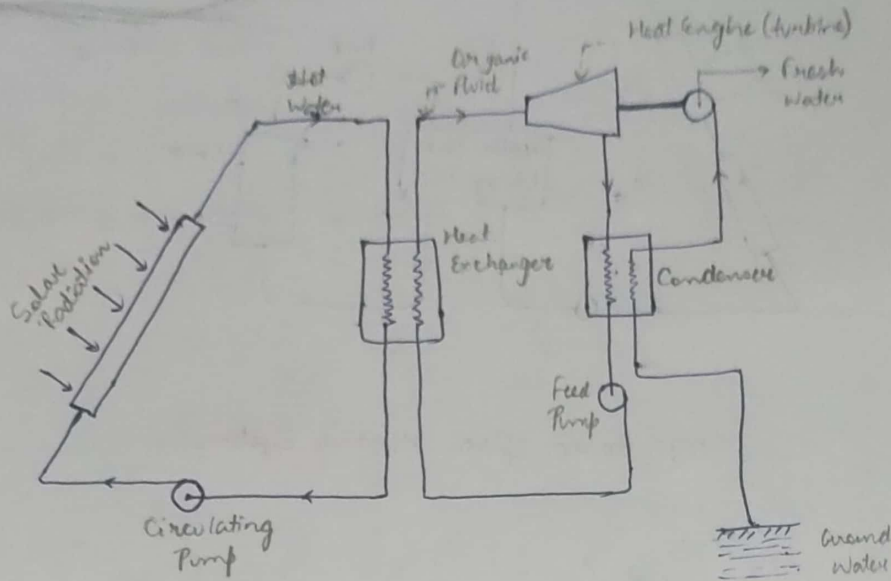 Heat Engine (turbine)
Organic
fluid
Hot
Water
Fresh
Water
Solar
Radiation
Heat
Exchanger
Condenser
Feed
Pump
Circulating
Pump
Ground
Water